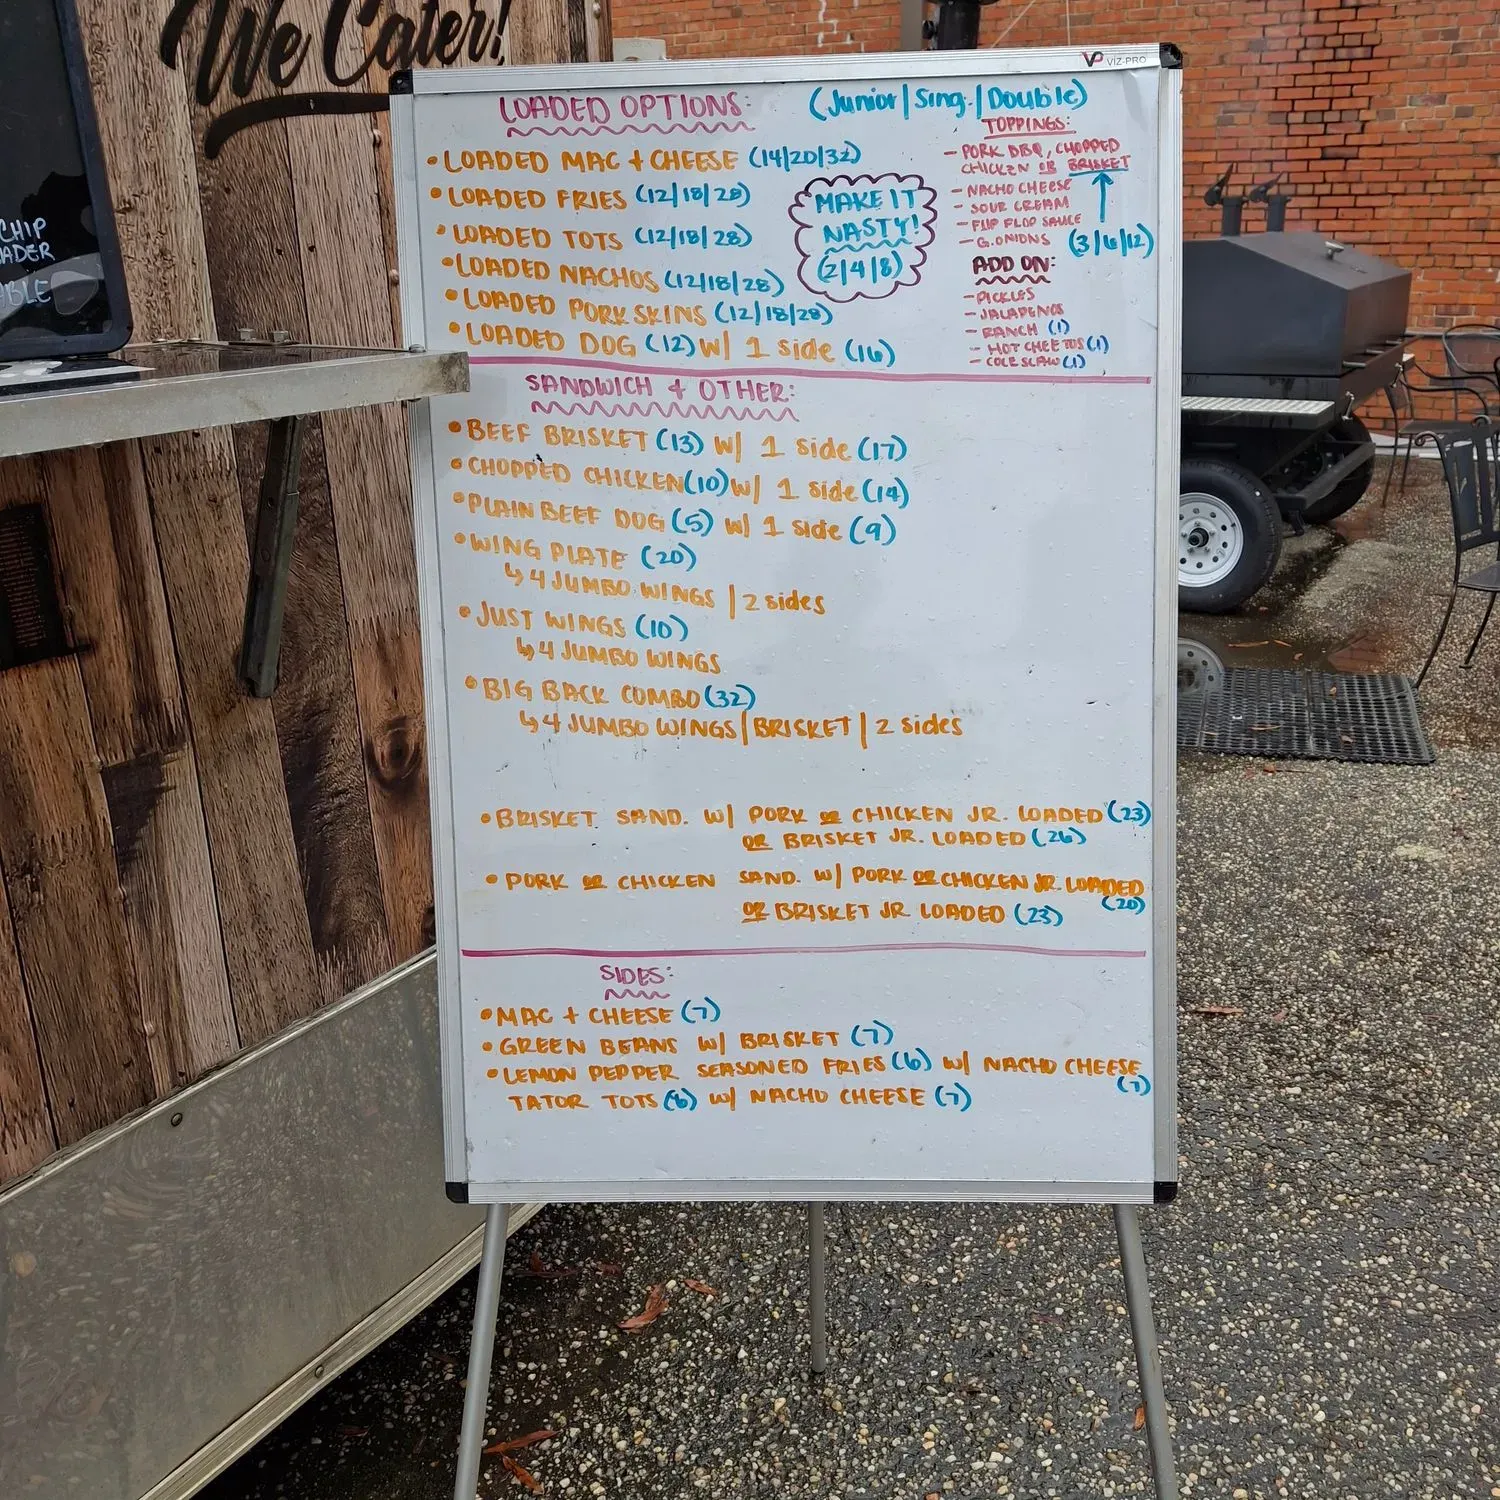 We Cater!
CHIP
ADER
ABLE
VP VIZ-PRO
LOADED OPTIONS: (Junior|Sing.|Double)
• LOADED MAC + CHEESE (14/20/32)
• LOADED FRIES (12/18/28)
• LOADED TOTS (12/18/28)
• LOADED NACHOS (12/18/28)
• LOADED PORK SKINS (12/18/28)
• LOADED DOG (12) w/ 1 side (16)
MAKE IT
NASTY!
(2/4/8)
TOPPINGS:
- PORK BBQ, CHOPPED
CHICKEN OR BRISKET
- NACHO CHEESE
- SOUR CREAM
- FLIP FLOP SAUCE
- G.ONIONS (3/6/12)
ADD ON:
- PICKLES
- JALAPENOS
- RANCH (1)
- HOT CHEETOS (1)
- COLE SLAW (1)
SANDWICH + OTHER:
• BEEF BRISKET (13) w/ 1 side (17)
• CHOPPED CHICKEN (10) w/ 1 side (14)
• PLAIN BEEF DOG (5) w/ 1 side (9)
• WING PLATE (20)
↳ 4 JUMBO WINGS | 2 sides
• JUST WINGS (10)
↳ 4 JUMBO WINGS
• BIG BACK COMBO (32)
↳ 4 JUMBO WINGS | BRISKET | 2 sides
• BRISKET SAND. W/ PORK OR CHICKEN JR. LOADED (23)
OR BRISKET JR. LOADED (26)
• PORK OR CHICKEN SAND. W/ PORK OR CHICKEN JR. LOADED
(20)
OR BRISKET JR LOADED (23)
SIDES:
• MAC + CHEESE (7)
• GREEN BEANS W/ BRISKET (7)
• LEMON PEPPER SEASONED FRIES (6) W/ NACHO CHEESE
(7)
TATOR TOTS (6) W/ NACHO CHEESE (7)